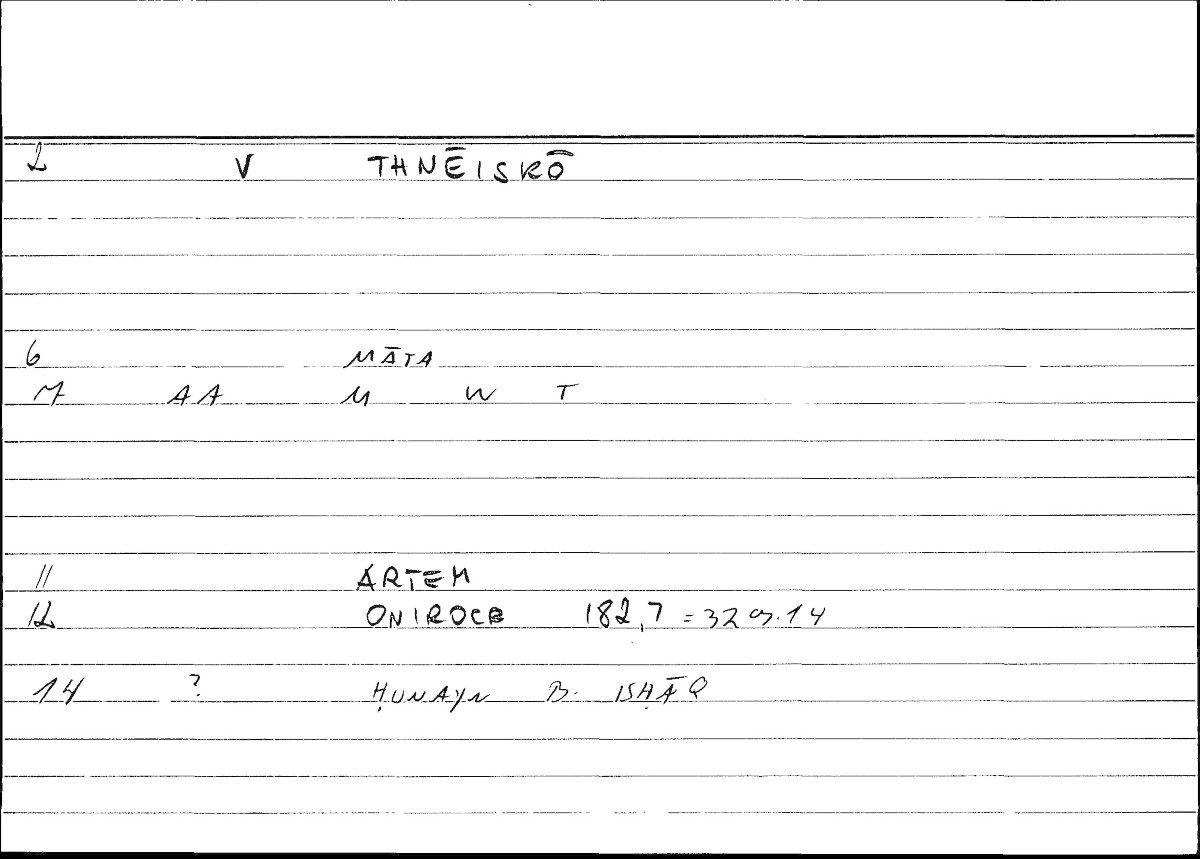 2 V THNĒISKŌ
6 MĀTA
7 AA M W T
11 ARTEM
12 ONIROCR 182,7 =
14 ? ḤUNAYN B. ISḤĀQ